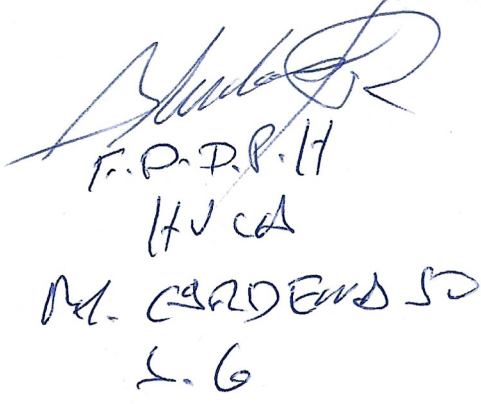 F.D.D.P.H
HVCA
M. CARDENAS SD
S. G